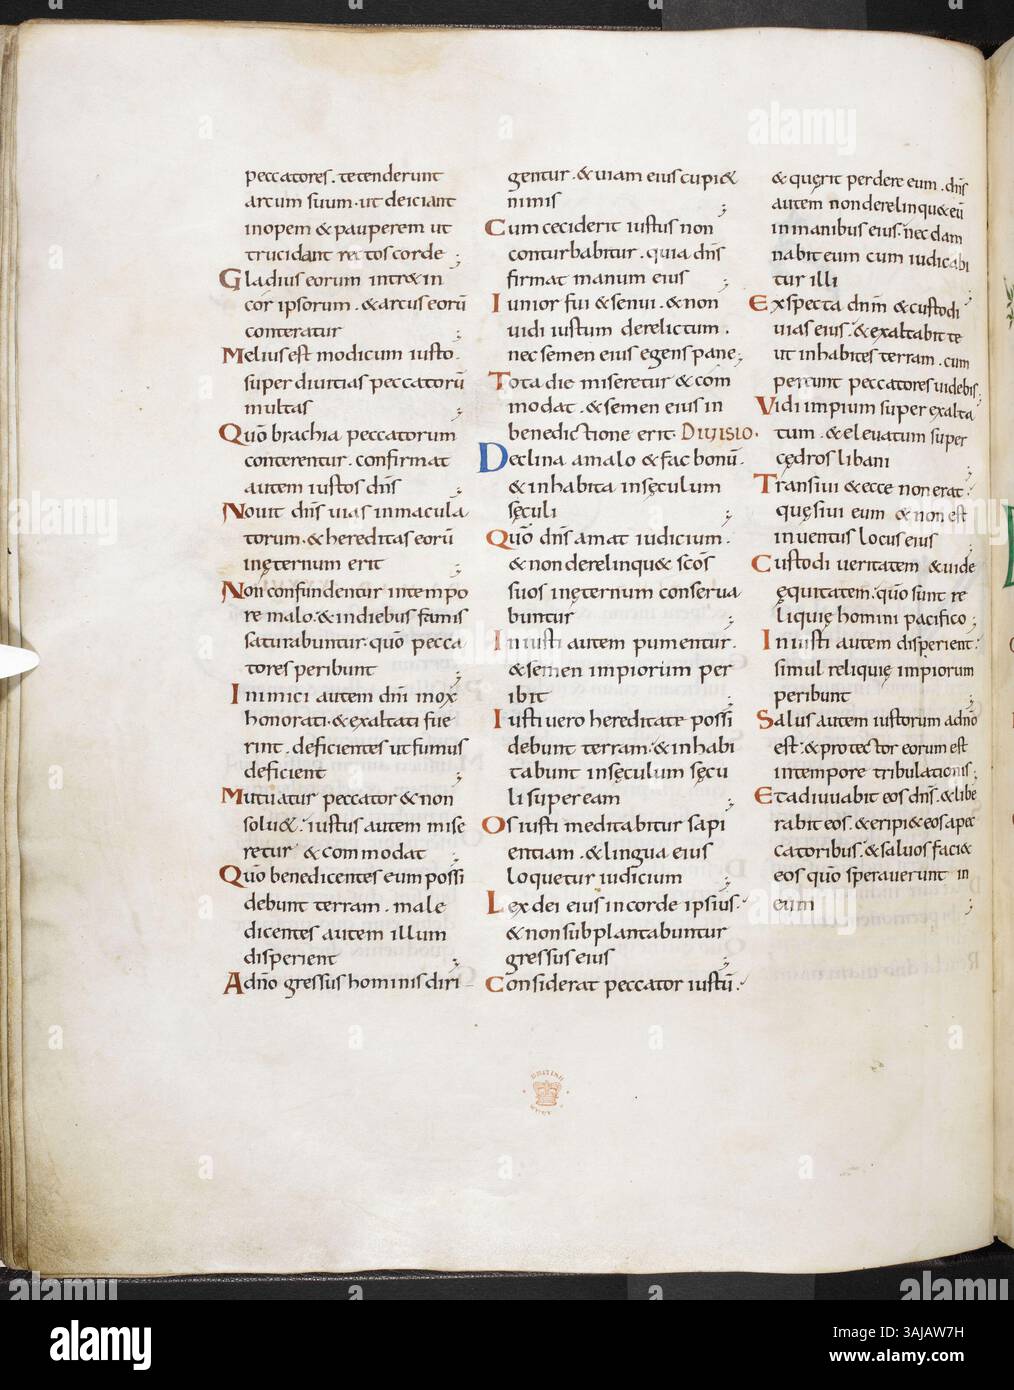 peccatores. tetenderunt
arcum suum. ut deiciant
inopem & pauperem ut
trucidant rectos corde ;
Gladius eorum intr& in
cor ipsorum. & arcus eorū
conteratur ;
Melius est modicum iusto.
super diuitias peccatorū
multas ;
Quō brachia peccatorum
conterentur. confirmat
autem iustos dn̄s ;
Nouit dn̄s uias inmacula
torum. & hereditas eorū
inęternum erit ;
Non confundentur intempo
re malo. & indiebus famis
saturabuntur. quō pecca
tores peribunt ;
Inimici autem dnī mox
honorati. & exaltati fue
rint. deficientes ut fumus
deficient ;
Mutuatur peccator & non
solu&. iustus autem mise
retur & commodat ;
Quō benedicentes eum possi
debunt terram. male
dicentes autem illum
disperient ;
Adnō gressus hominis diri
gentur. & uiam eius cupi&
nimis ;
Cum ceciderit iustus non
conturbabitur. quia dn̄s
firmat manum eius ;
Iunior fui & senui. & non
uidi iustum derelictum.
nec semen eius egens pane;
Tota die miseretur & com
modat. & semen eius in
benedictione erit. DIUISIO.
Declina amalo & fac bonū.
& inhabita insęculum
sęculi ;
Quō dn̄s amat iudicium.
& non derelinqu& scōs
suos inęternum conserua
buntur ;
Iniusti autem punientur.
& semen impiorum per
ibit ;
Iusti uero hereditate possi
debunt terram. & inhabi
tabunt insęculum sęcu
li super eam ;
Os iusti meditabitur sapi
entiam. & lingua eius
loquetur iudicium ;
Lex dei eius incorde ipsius.
& non subplantabuntur
gressus eius ;
Considerat peccator iustū.
& quęrit perdere eum. dn̄s
autem non derelinqu& eū
inmanibus eius. nec dam
nabit eum cum iudicabi
tur illi ;
Exspecta dnm̄ & custodi
uias eius. & exaltabit te
ut inhabites terram. cum
perierint peccatores uidebis;
Vidi impium super exalta
tum. & eleuatum super
cędros libani ;
Transiui & ecce non erat.
quęsiui eum & non est
inuentus locus eius ;
Custodi ueritatem & uide
ęquitatem. quō sunt re
liquię homini pacifico ;
Iniusti autem disperient.
simul reliquię impiorum
peribunt ;
Salus autem iustorum adnō
est. & protector eorum est
intempore tribulationis;
Et adiuuabit eos dn̄s. & libe
rabit eos. & eripi& eos apec
catoribus. & saluos faci&
eos quō sperauerunt in
eum ;
BRITISH
MUSEUM
alamy
2AJAW7H
www.alamy.com